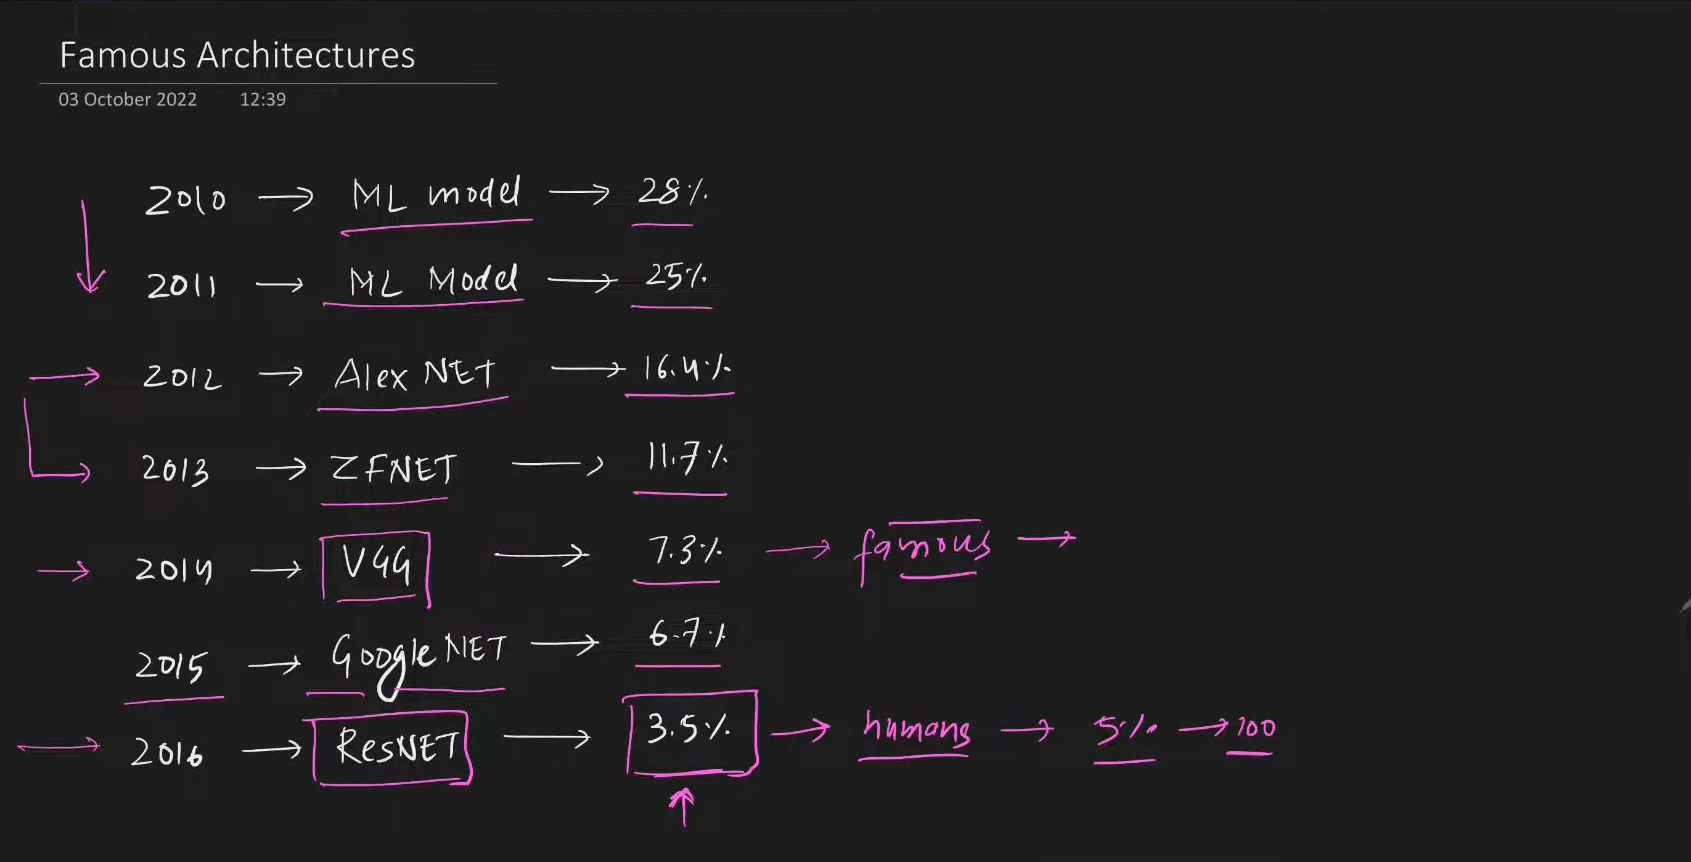 Famous Architectures
03 October 2022 12:39
2010 → ML model → 28%
2011 → ML Model → 25%
2012 → Alex NET → 16.4%
2013 → ZFNET → 11.7%
2014 → VGG → 7.3% → famous →
2015 → Google NET → 6.7%
2016 → ResNET → 3.5% → humans → 5% → 100